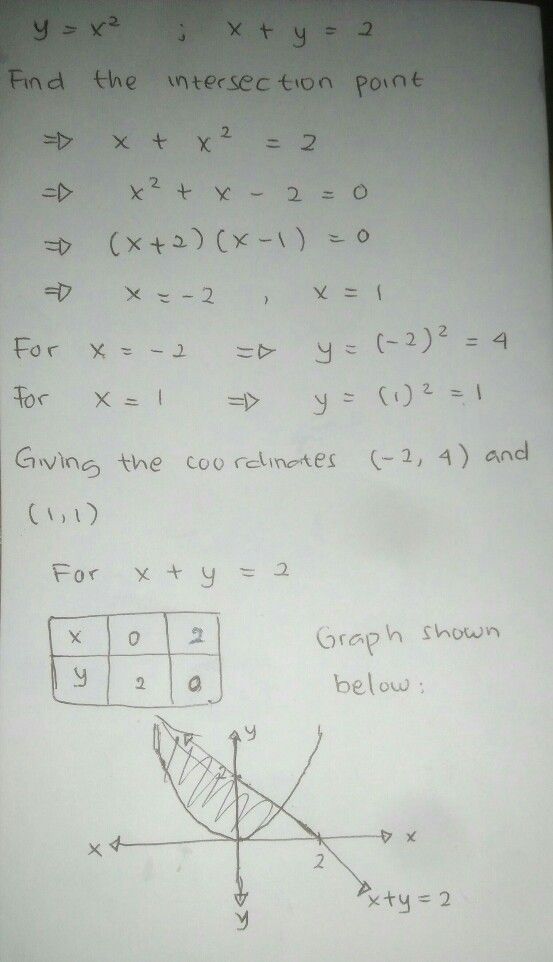 y = x² ; x + y = 2
Find the intersection point
⇒ x + x² = 2
⇒ x² + x - 2 = 0
⇒ (x+2)(x-1) = 0
⇒ x = -2 , x = 1
For x = -2 ⇒ y = (-2)² = 4
For x = 1 ⇒ y = (1)² = 1
Giving the coordinates (-2, 4) and
(1,1)
For x + y = 2
x 0 2
y 2 0
Graph shown
below:
y
2
x x
2
x+y=2
y